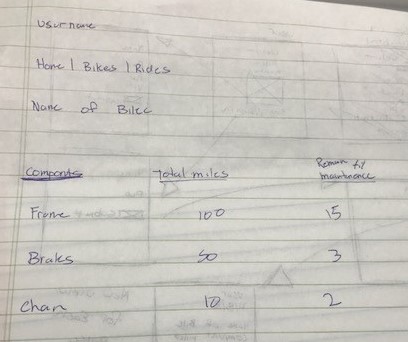 Username
Home | Bikes | Rides
Name of Bike
Components Total miles Remain til maintnence
Frame 100 15
Braks 50 3
Chan 10 2